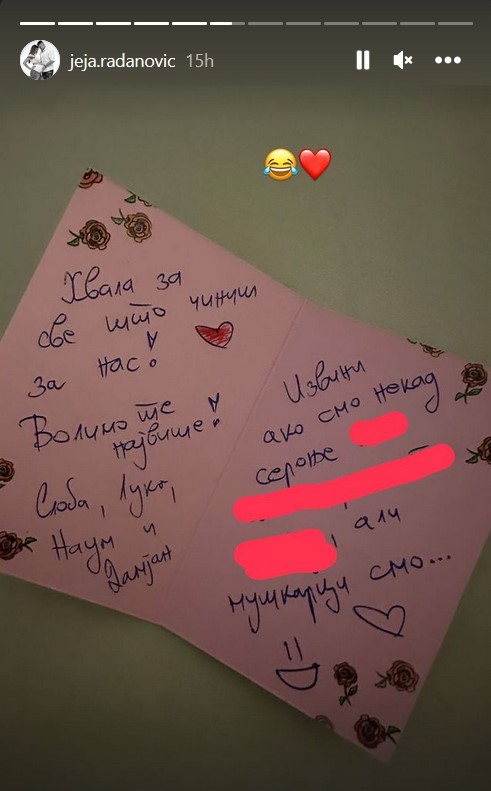 jeja.radanovic 15h
😂❤️
Хвала за
све што чиниш
за нас!
Волимо те
највише!
Слоба, Лука,
Наум и
Дамјан
Извини
ако смо некад
сероње
, али
мушкарци смо...